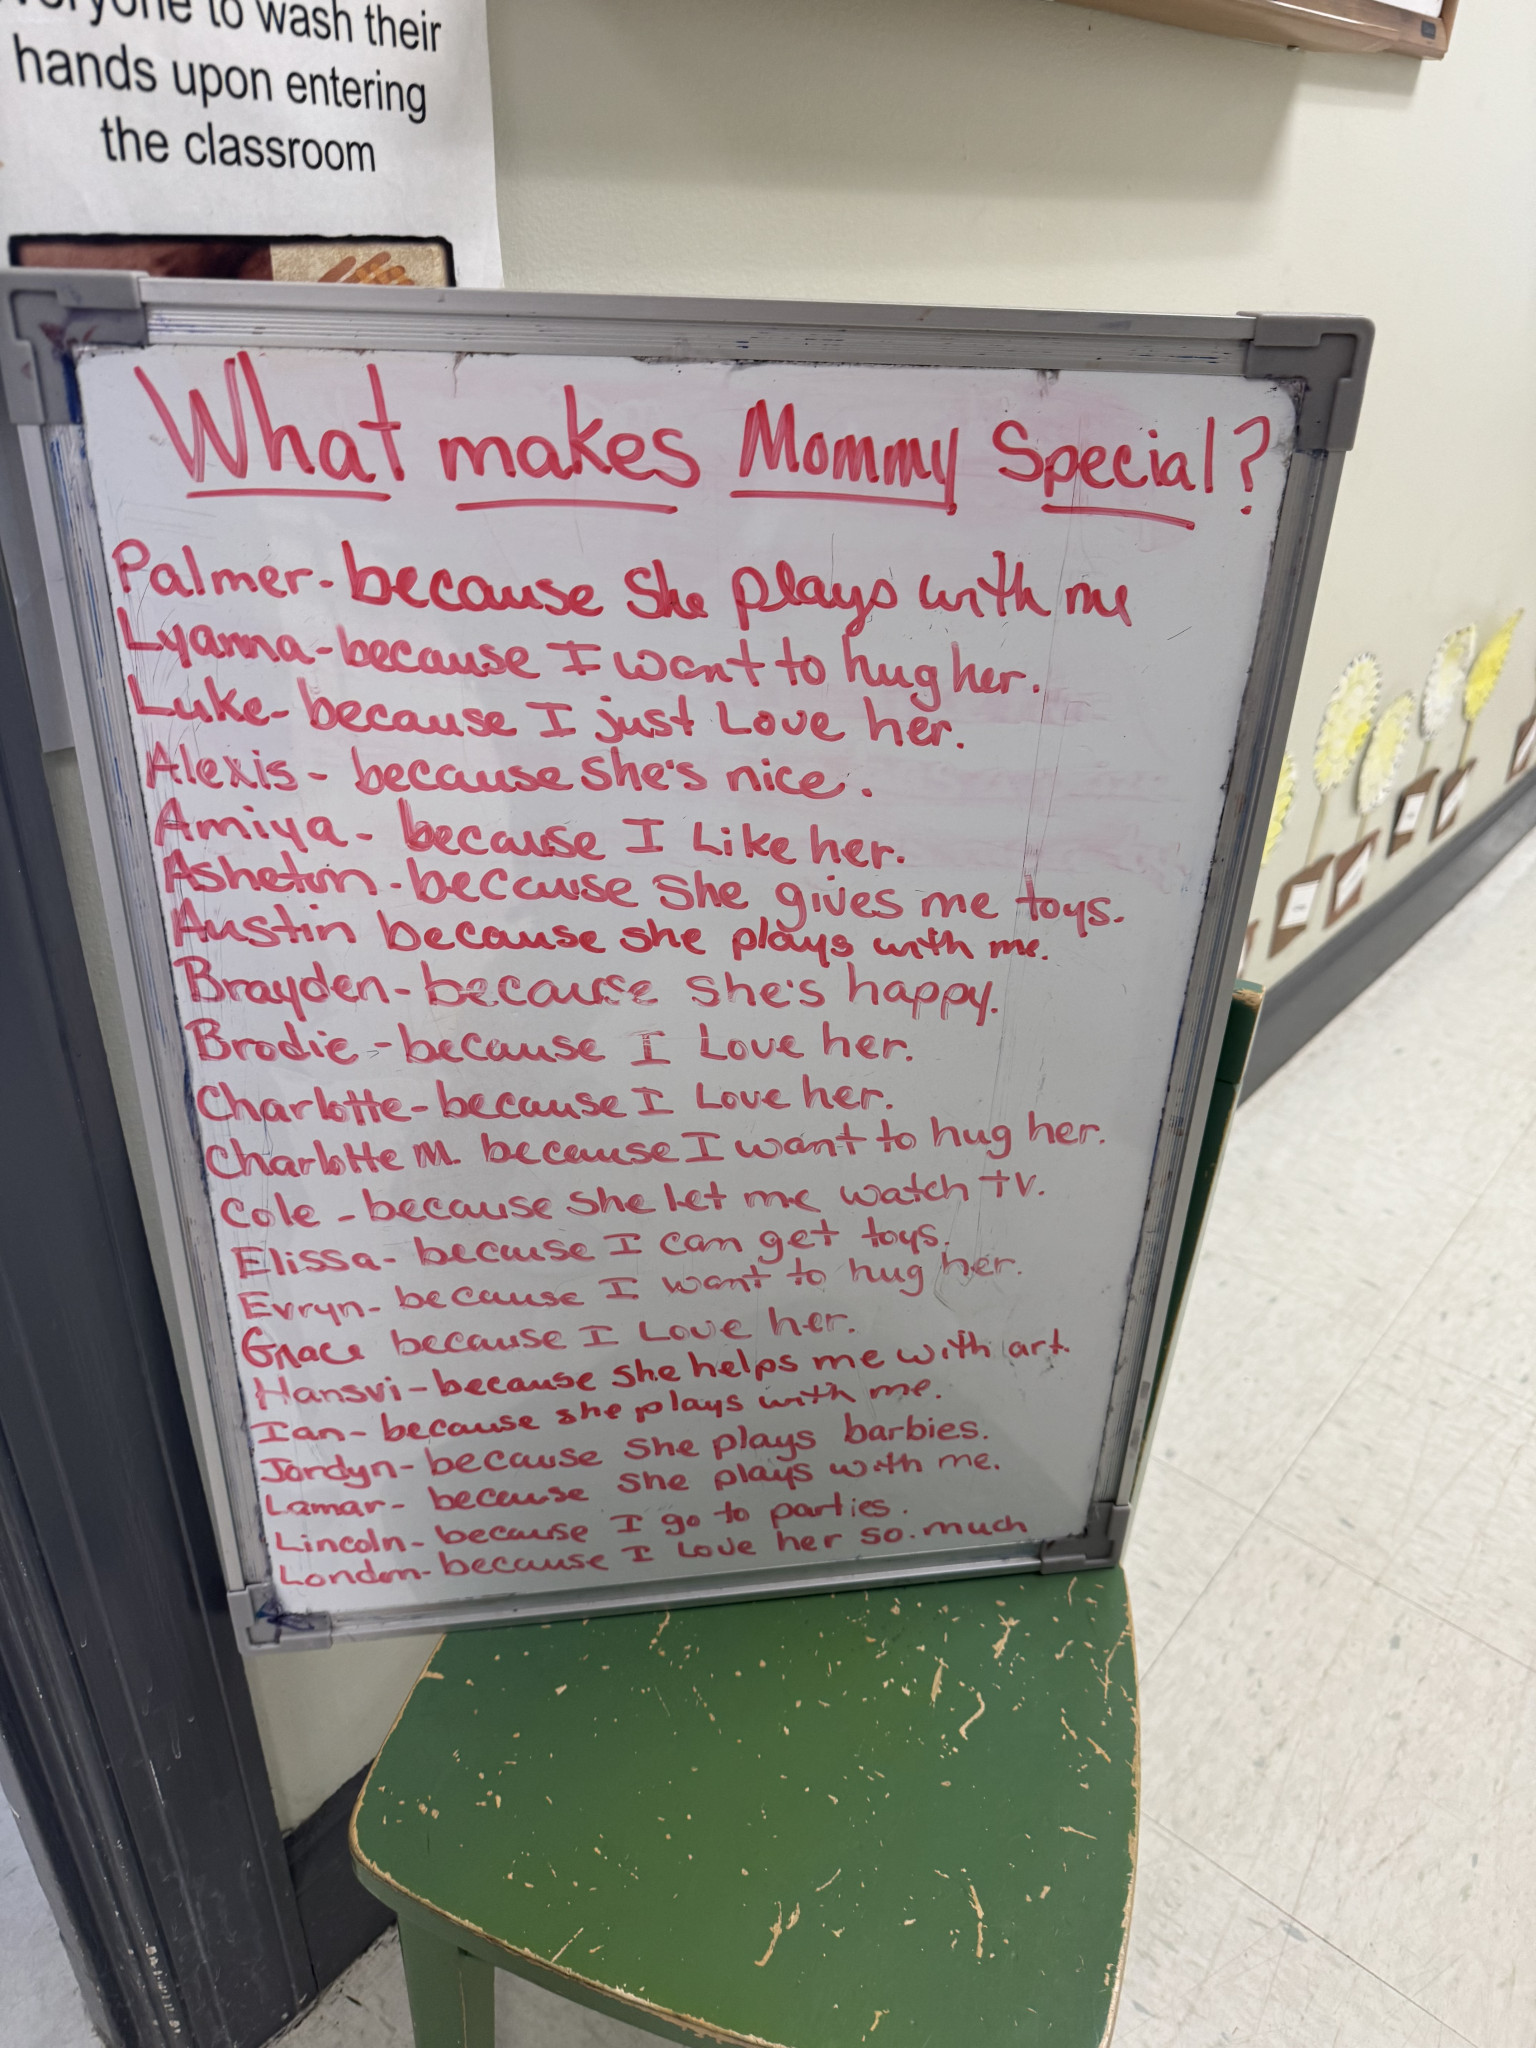 everyone to wash their
hands upon entering
the classroom
What makes Mommy Special?
Palmer- because she plays with me
Lyanna- because I want to hug her.
Luke- because I just Love her.
Alexis- because she's nice.
Amiya- because I Like her.
Asheton- because she gives me toys.
Austin because she plays with me.
Brayden- because she's happy.
Brodie- because I Love her.
Charlotte- because I Love her.
Charlotte M. because I want to hug her.
Cole- because she let me watch TV.
Elissa- because I can get toys.
Evryn- because I want to hug her.
Grace because I Love her.
Hansvi- because she helps me with art.
Ian- because she plays with me.
Jordyn- because she plays barbies.
Lamar- because she plays with me.
Lincoln- because I go to parties.
London- because I Love her so much